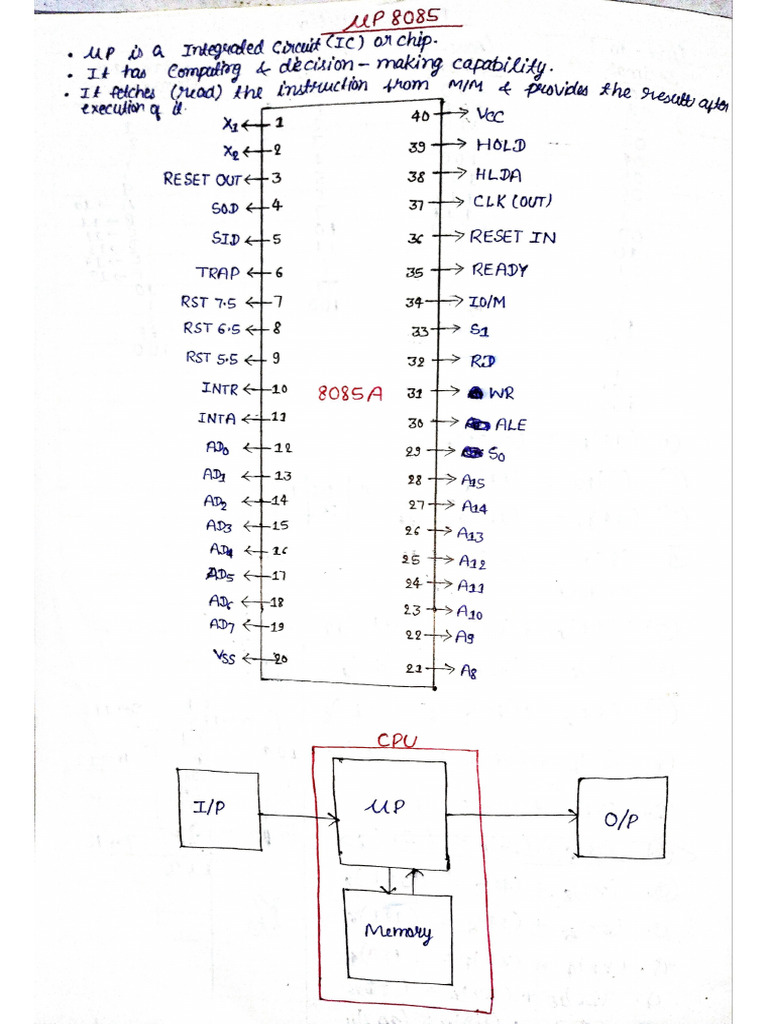 µP 8085
• µP is a Integraded Circuit (IC) or chip.
• It has Computing & decision-making capability.
• It fetches (read) the instruction from M/M & provides the result after
execution of it.
X1 ← 1
X2 ← 2
RESET OUT ← 3
SOD ← 4
SID ← 5
TRAP ← 6
RST 7.5 ← 7
RST 6.5 ← 8
RST 5.5 ← 9
INTR ← 10
INTA ← 11
AD0 ← 12
AD1 ← 13
AD2 ← 14
AD3 ← 15
AD4 ← 16
AD5 ← 17
AD6 ← 18
AD7 ← 19
VSS ← 20
8085A
40 → VCC
39 → HOLD
38 → HLDA
37 → CLK (OUT)
36 → RESET IN
35 → READY
34 → IO/M
33 → S1
32 → RD
31 → WR
30 → ALE
29 → S0
28 → A15
27 → A14
26 → A13
25 → A12
24 → A11
23 → A10
22 → A9
21 → A8
CPU
I/P
µP
O/P
Memory